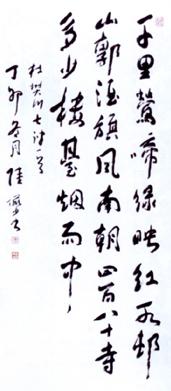 千里莺啼绿映红水村
山郭酒旗风南朝四百八十寺
多少楼台烟雨中
杜樊川七绝一首
丁卯冬月陆俨少书